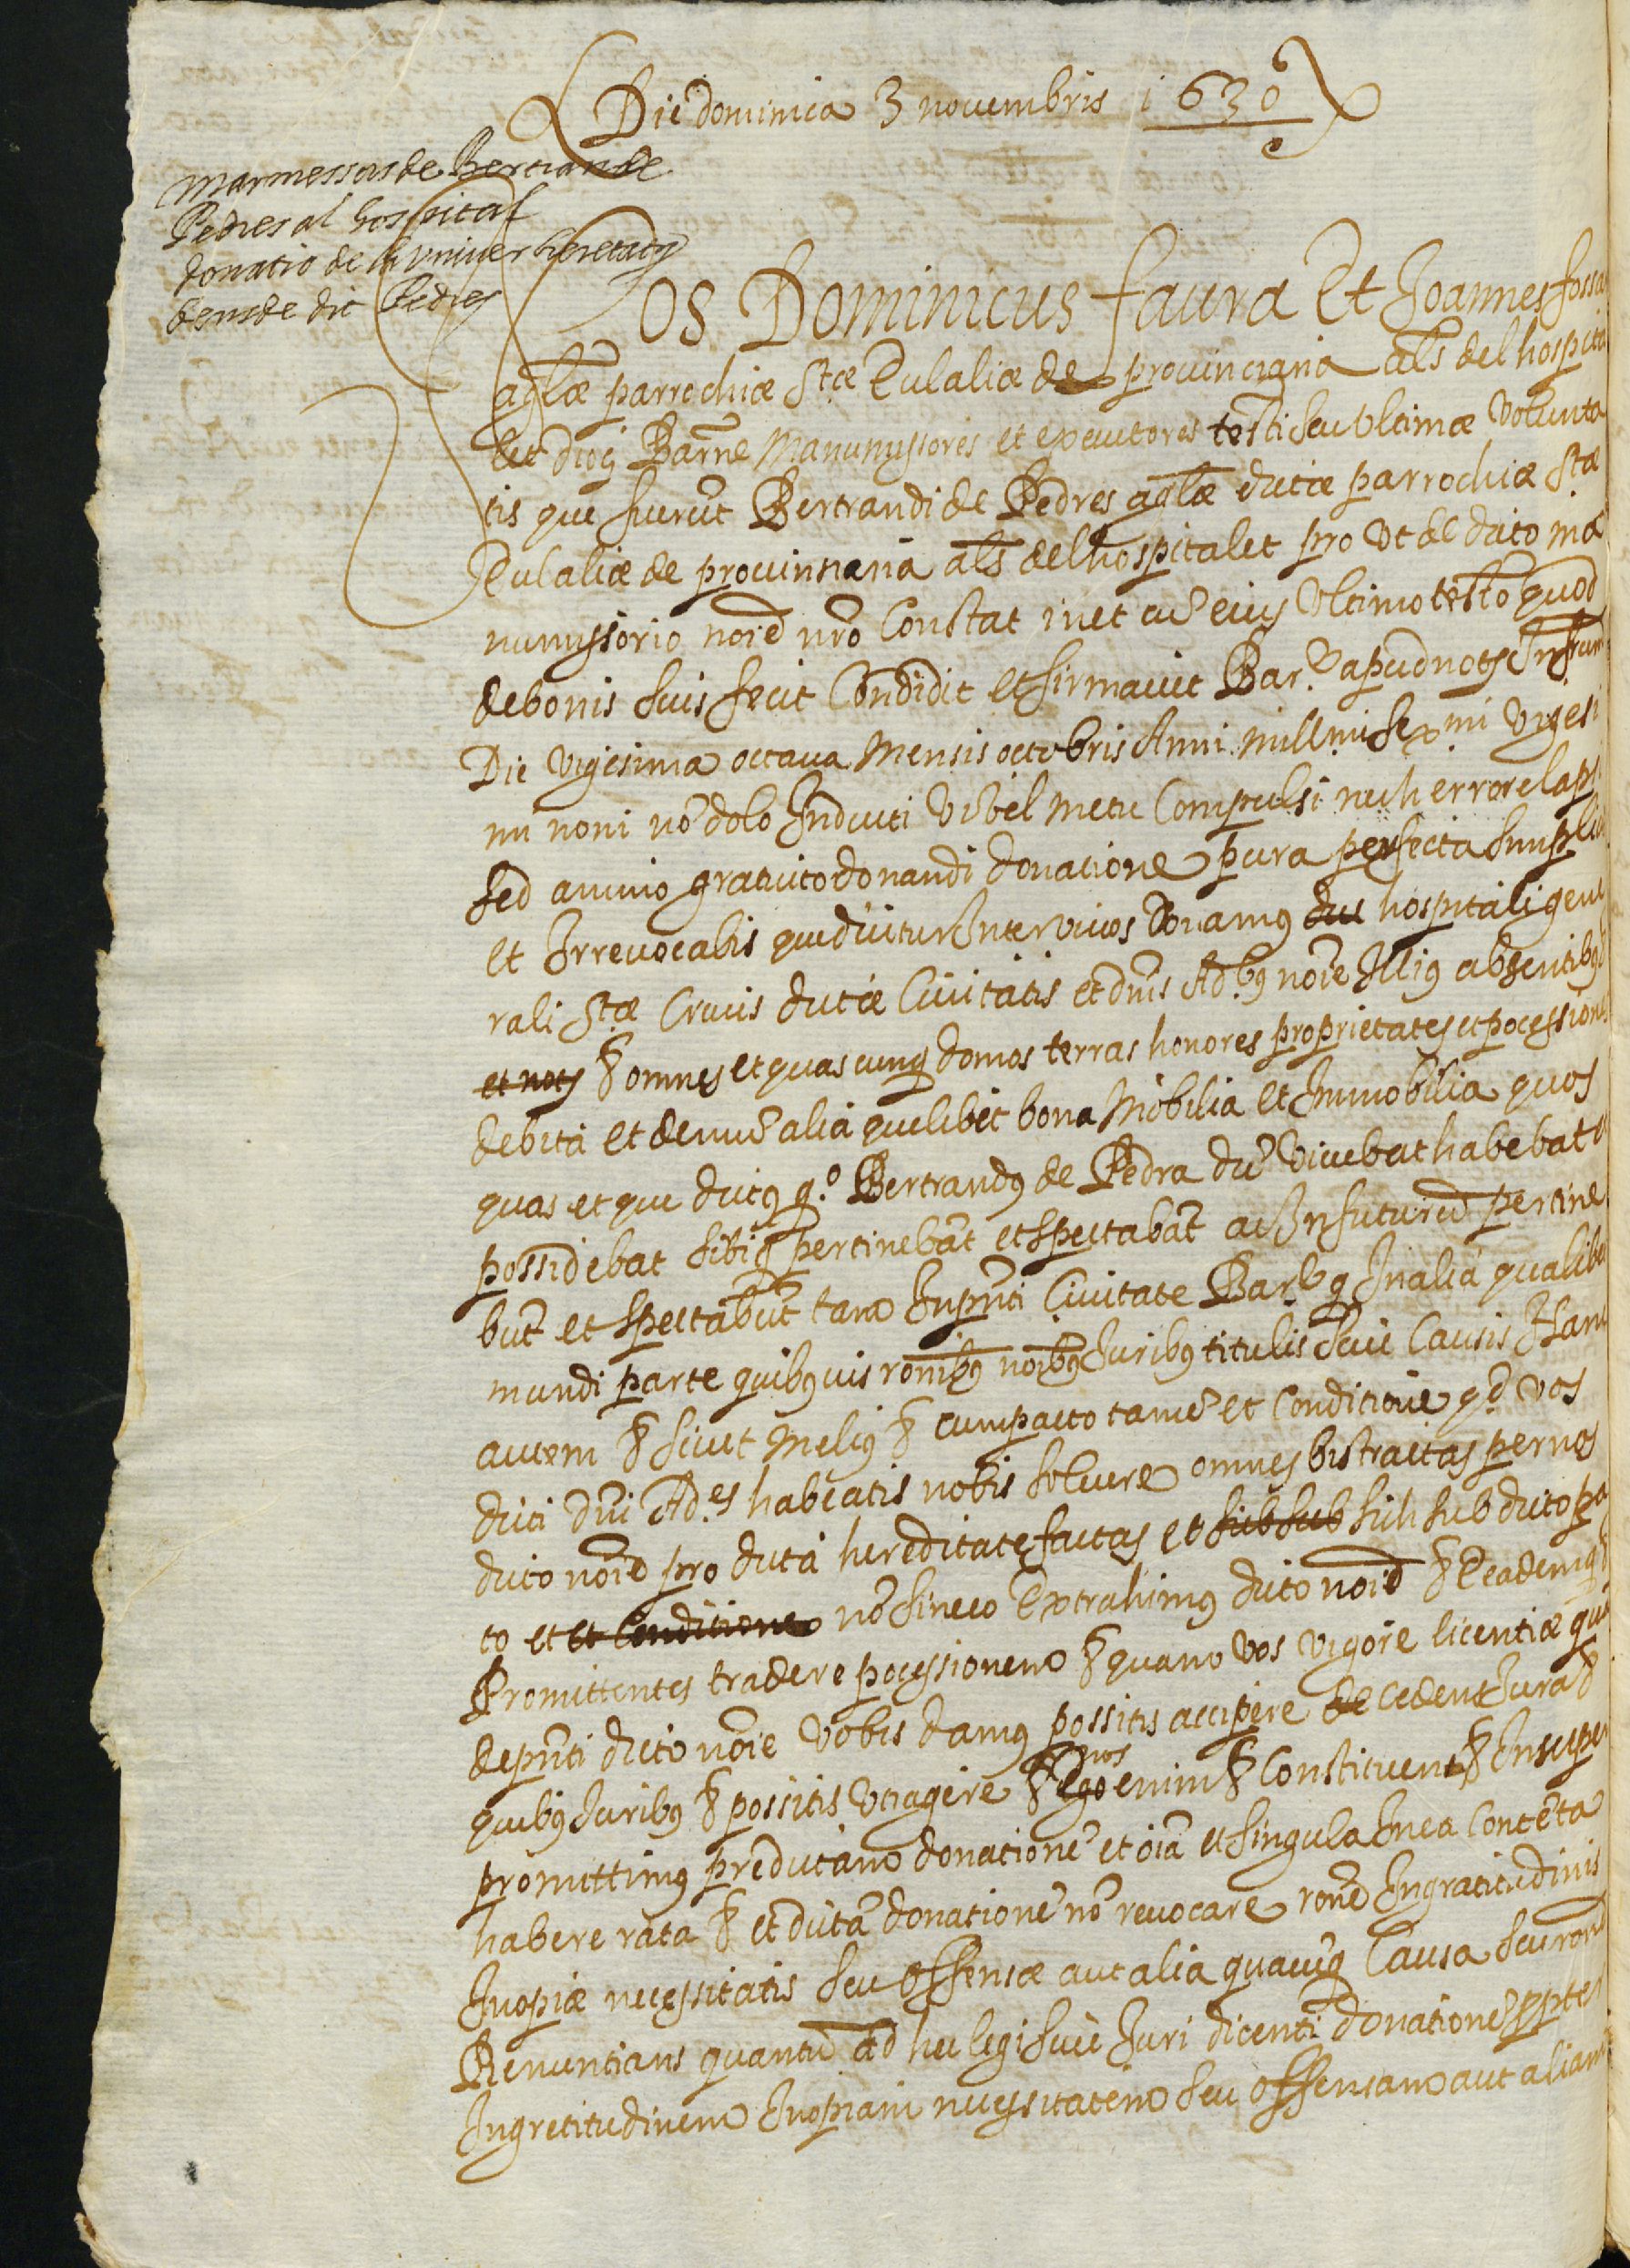 Die dominica 3 novembris 1630
marmessors de Bertran de
Pedres al hospital
donatio de la univer heretat y
bens de dit Pedres
Nos Dominicus faura Et Joannes fossa
aglæ parrochiæ Stæ Eulaliæ de provinciana als del hospita
let diocs Barne Manumissores et executores testi seu Ultimæ Volunta
tis que fuerut Bertrandi de Pedres aglæ dictæ parrochiæ Stæ
Eulaliæ de provinsiana als del hospitalet pro Vt de dicto ma
numissorio noie nro Constat in et cu eius Ultimo testo quod
de bonis suis fecit Condidit et firmavit Bar.e apud nots Infrum
Die Vigesima octava Mensis octobris Anni millmi sexmi Vigesi
mi noni no dolo Inducti Vi vel metu Compulsi nech errore lapsi
sed animo gratuito donandi donatione pura perfecta simplici
et Irrevocabis que dicitur Inter vivos Donamus dic hospitali gene
rali Stæ Crucis dictæ Civitatis et dnis Ad.bus noie Illius absentibus
et nots & omnes et quascunq domos terras honores proprietates et pocessiones
debita et demu alia quelibet bona Mobilia et Immobilia quos
quas et que dictus q.o Bertrandus de Pedra du Vivebat habebat et
possidebat sibiq pertinebat et spectabat ac In futurum pertine
but et spectabut tam In pnti Civitate Bar.e q In alia qualibet
mundi parte quibusvis ronibus noibus Juribus titulis sive Causis Hanc
autem & sicut Melius & cum pacto tame et Conditione qd vos
dicti dni Ad.es habeatis nobis solvere omnes bistractas per nos
dicto noie pro dicta hereditate factas et sub sub sich sub dicto pa
cto et et Conditione no sine eo Extrahimus dicto noie & Eademq
Promittentes tradere pocessionem & quam vos vigore licentiæ qua
de pnti dicto noie Vobis damus possitis accipere de cedent Jura &
quibus Juribus & possitis Uti agere & Ego nos enim & Constituent & Insuper
promittimus predictam donatione et oia et singula In ea Conteta
habere rata & et dicta donatione no revocare rone Ingratitudinis
Inopiæ necessitatis seu offensæ aut alia quacuq Causa seu rone
Renuntians quantu ad hec legi sive Juri dicenti donatione ppter
Ingretitudinem Inopiam necessitatem seu offensam aut aliam